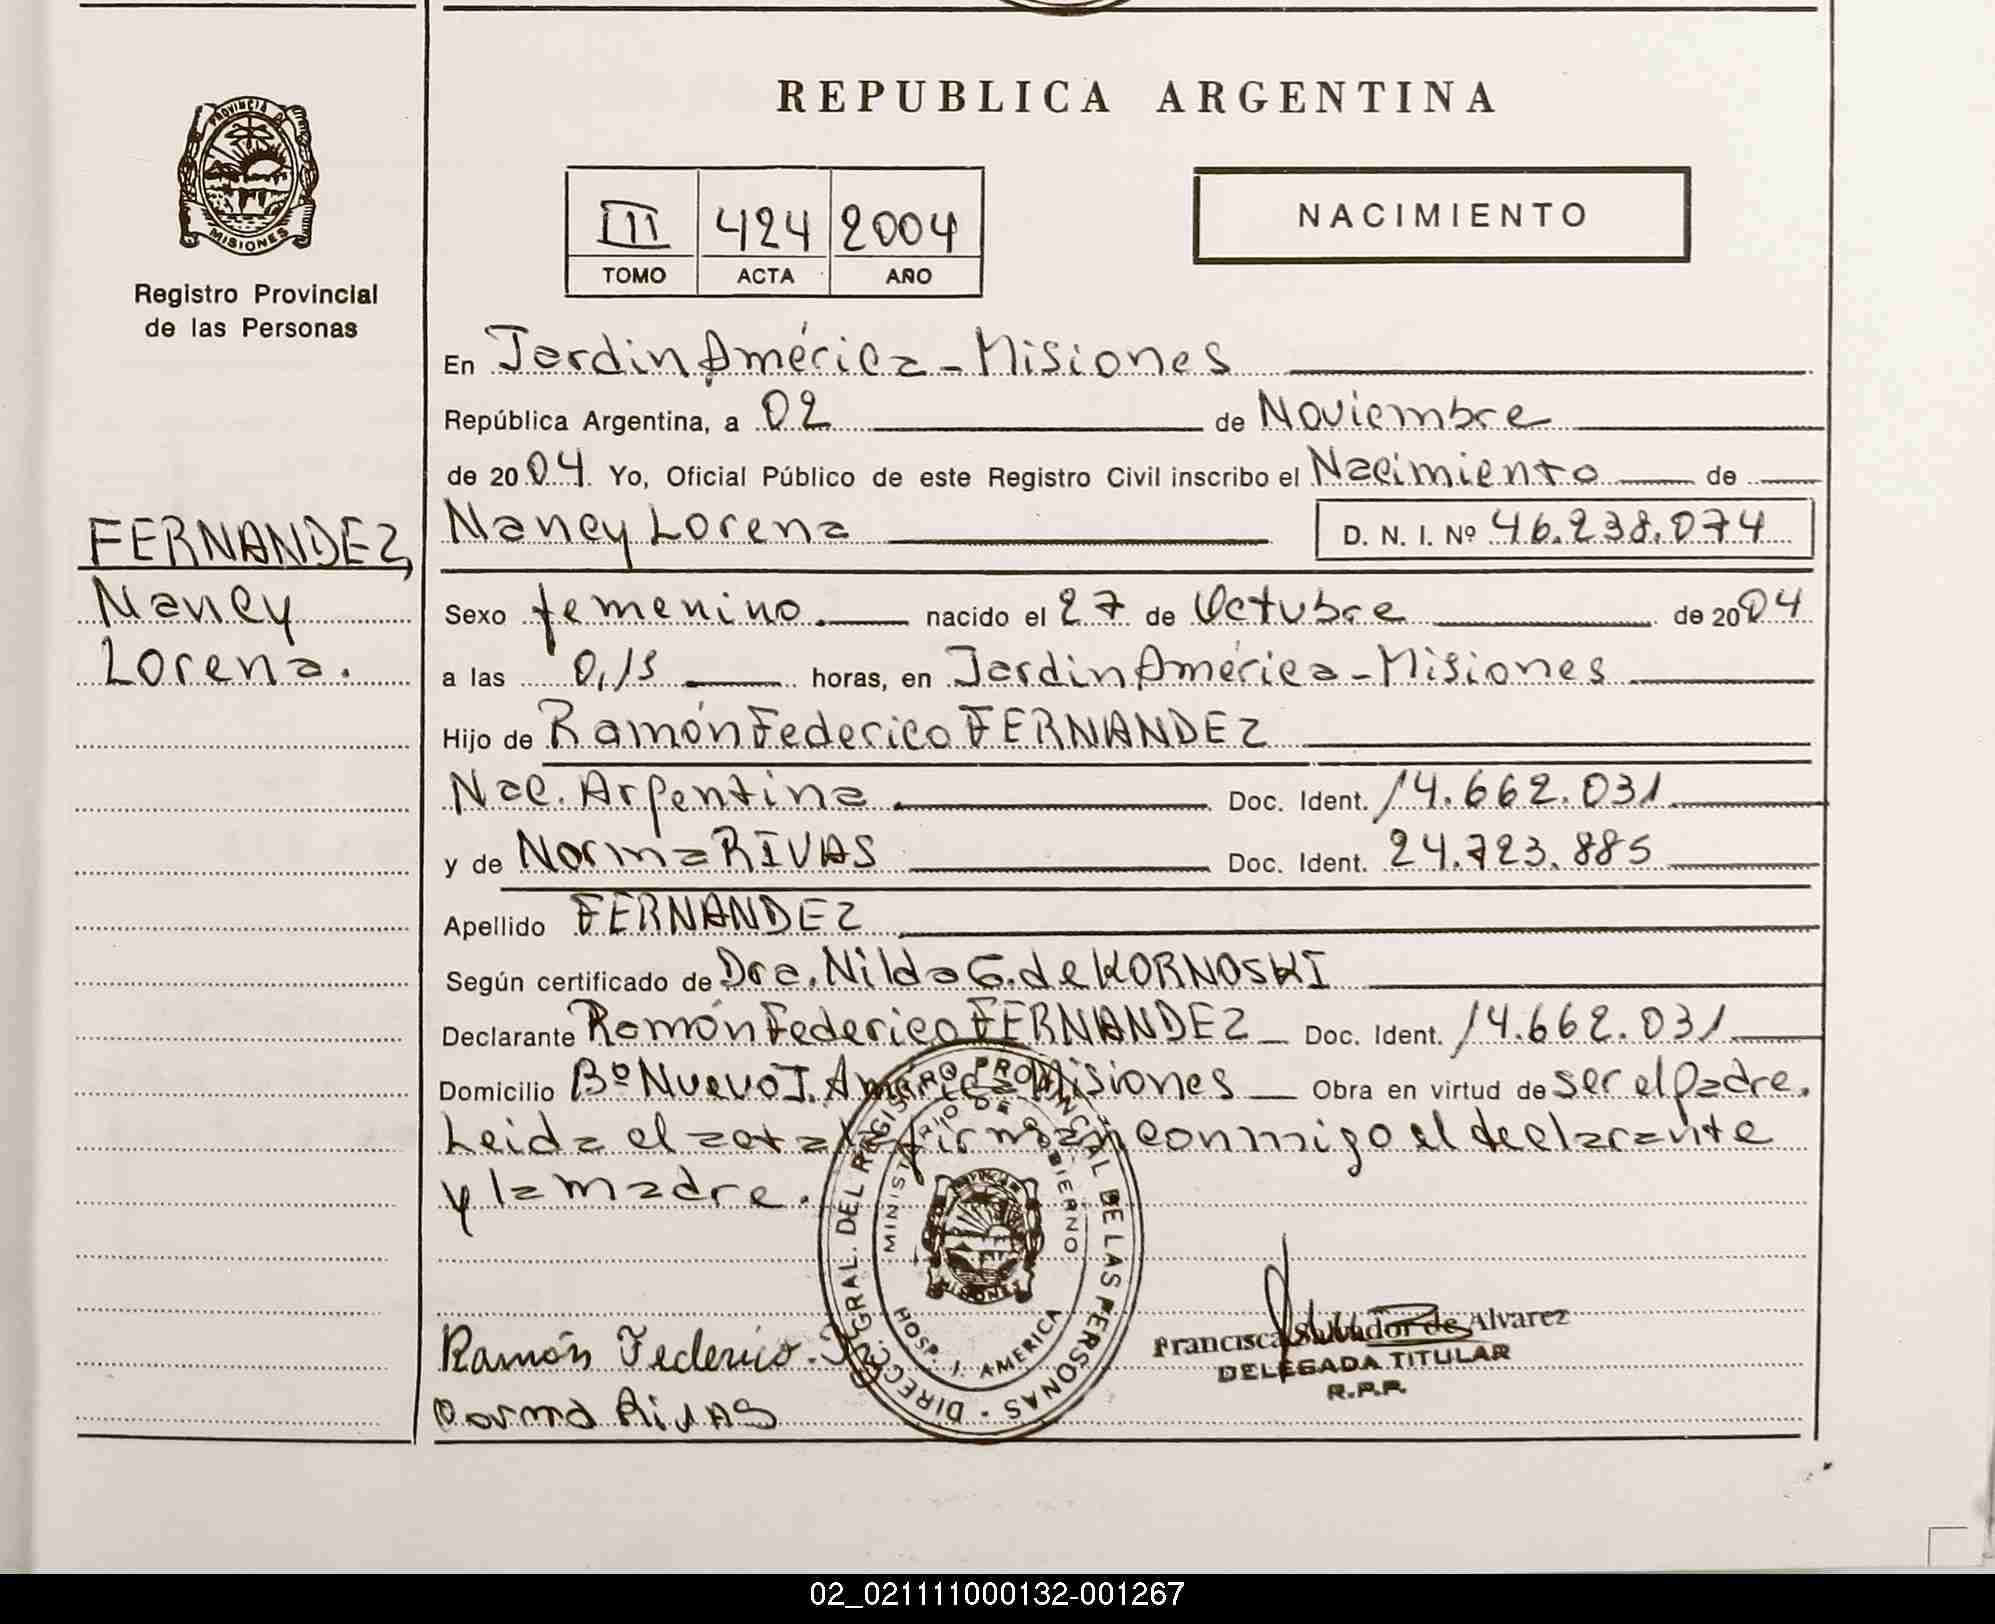 REPUBLICA ARGENTINA
PROVINCIA DE MISIONES
Registro Provincial
de las Personas
III 424 2004
TOMO ACTA AÑO
NACIMIENTO
En Jardin América - Misiones
República Argentina, a 02 de Noviembre
de 2004 Yo, Oficial Público de este Registro Civil inscribo el Nacimiento de
FERNANDEZ,
Nancy
Lorena.
Nancy Lorena D. N. I. Nº 46.238.074
Sexo femenino. nacido el 27 de Octubre de 2004
a las 0,15 horas, en Jardin América - Misiones
Hijo de Ramón Federico FERNANDEZ
Nac. Argentina Doc. Ident. 14.662.031
y de Norma RIVAS Doc. Ident. 24.723.885
Apellido FERNANDEZ
Según certificado de Dra. Nilda G. de KORNOSKI
Declarante Ramón Federico FERNANDEZ Doc. Ident. 14.662.031
Domicilio Bº Nuevo J. América Misiones Obra en virtud de ser el Padre.
Leida el acta firman conmigo el declarante
y la madre.
DIRECC. GRAL. DEL REGISTRO PROVINCIAL DE LAS PERSONAS
MINISTERIO DE GOBIERNO
HOSP. J. AMERICA
Ramón Federico.
Norma RiVAS
Francisca Salvador de Alvarez
DELEGADA TITULAR
R.P.P.
02_021111000132-001267